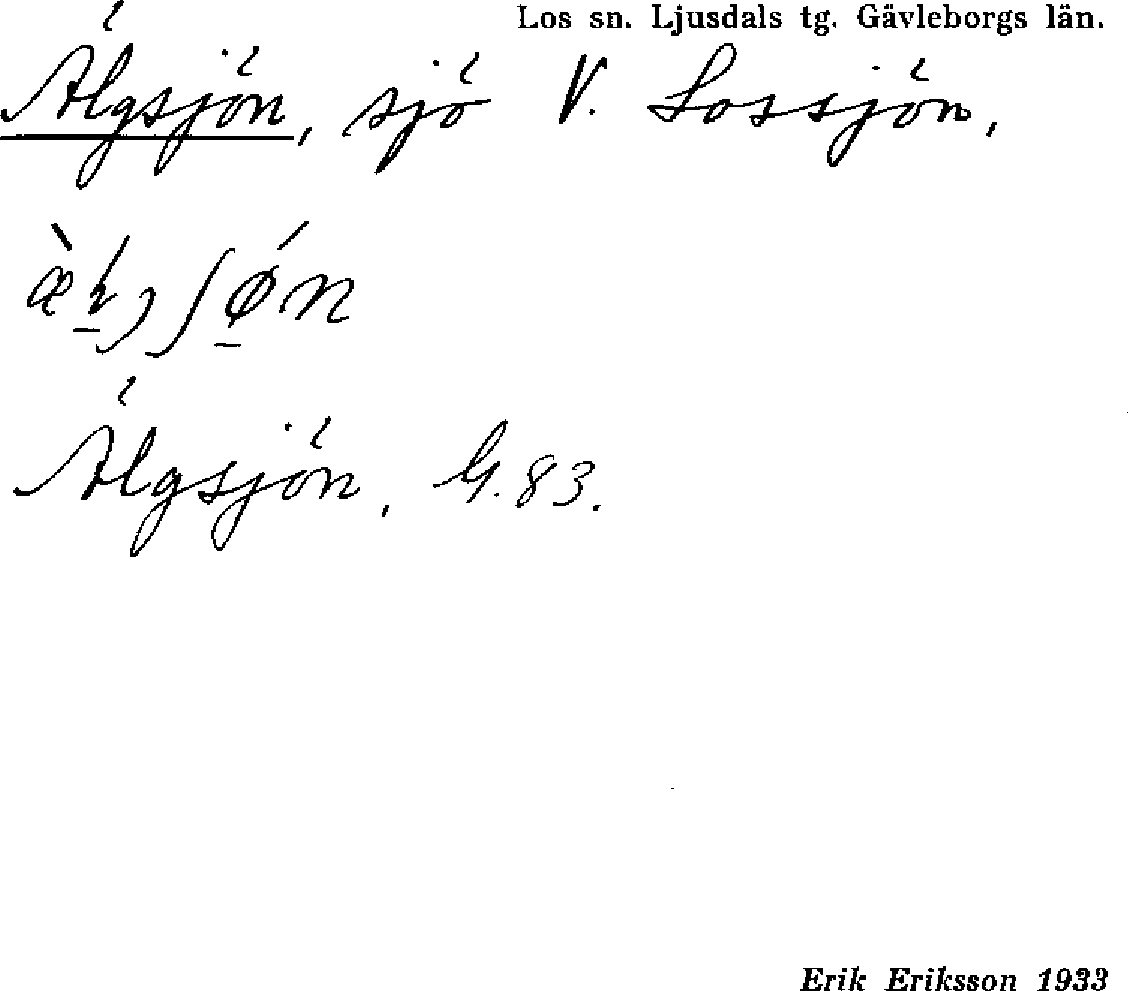 Los sn. Ljusdals tg. Gävleborgs län.
Älgsjön, sjö V. Lossjön,
Älgsjön, G. 83.
Erik Eriksson 1933